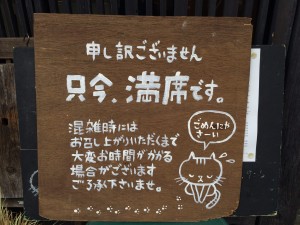 申し訳ございません
只今、満席です。
混雑時には
お召し上がりいただくまで
大変お時間がかかる
場合がございます
ご了承下さいませ。
ごめんなさーい